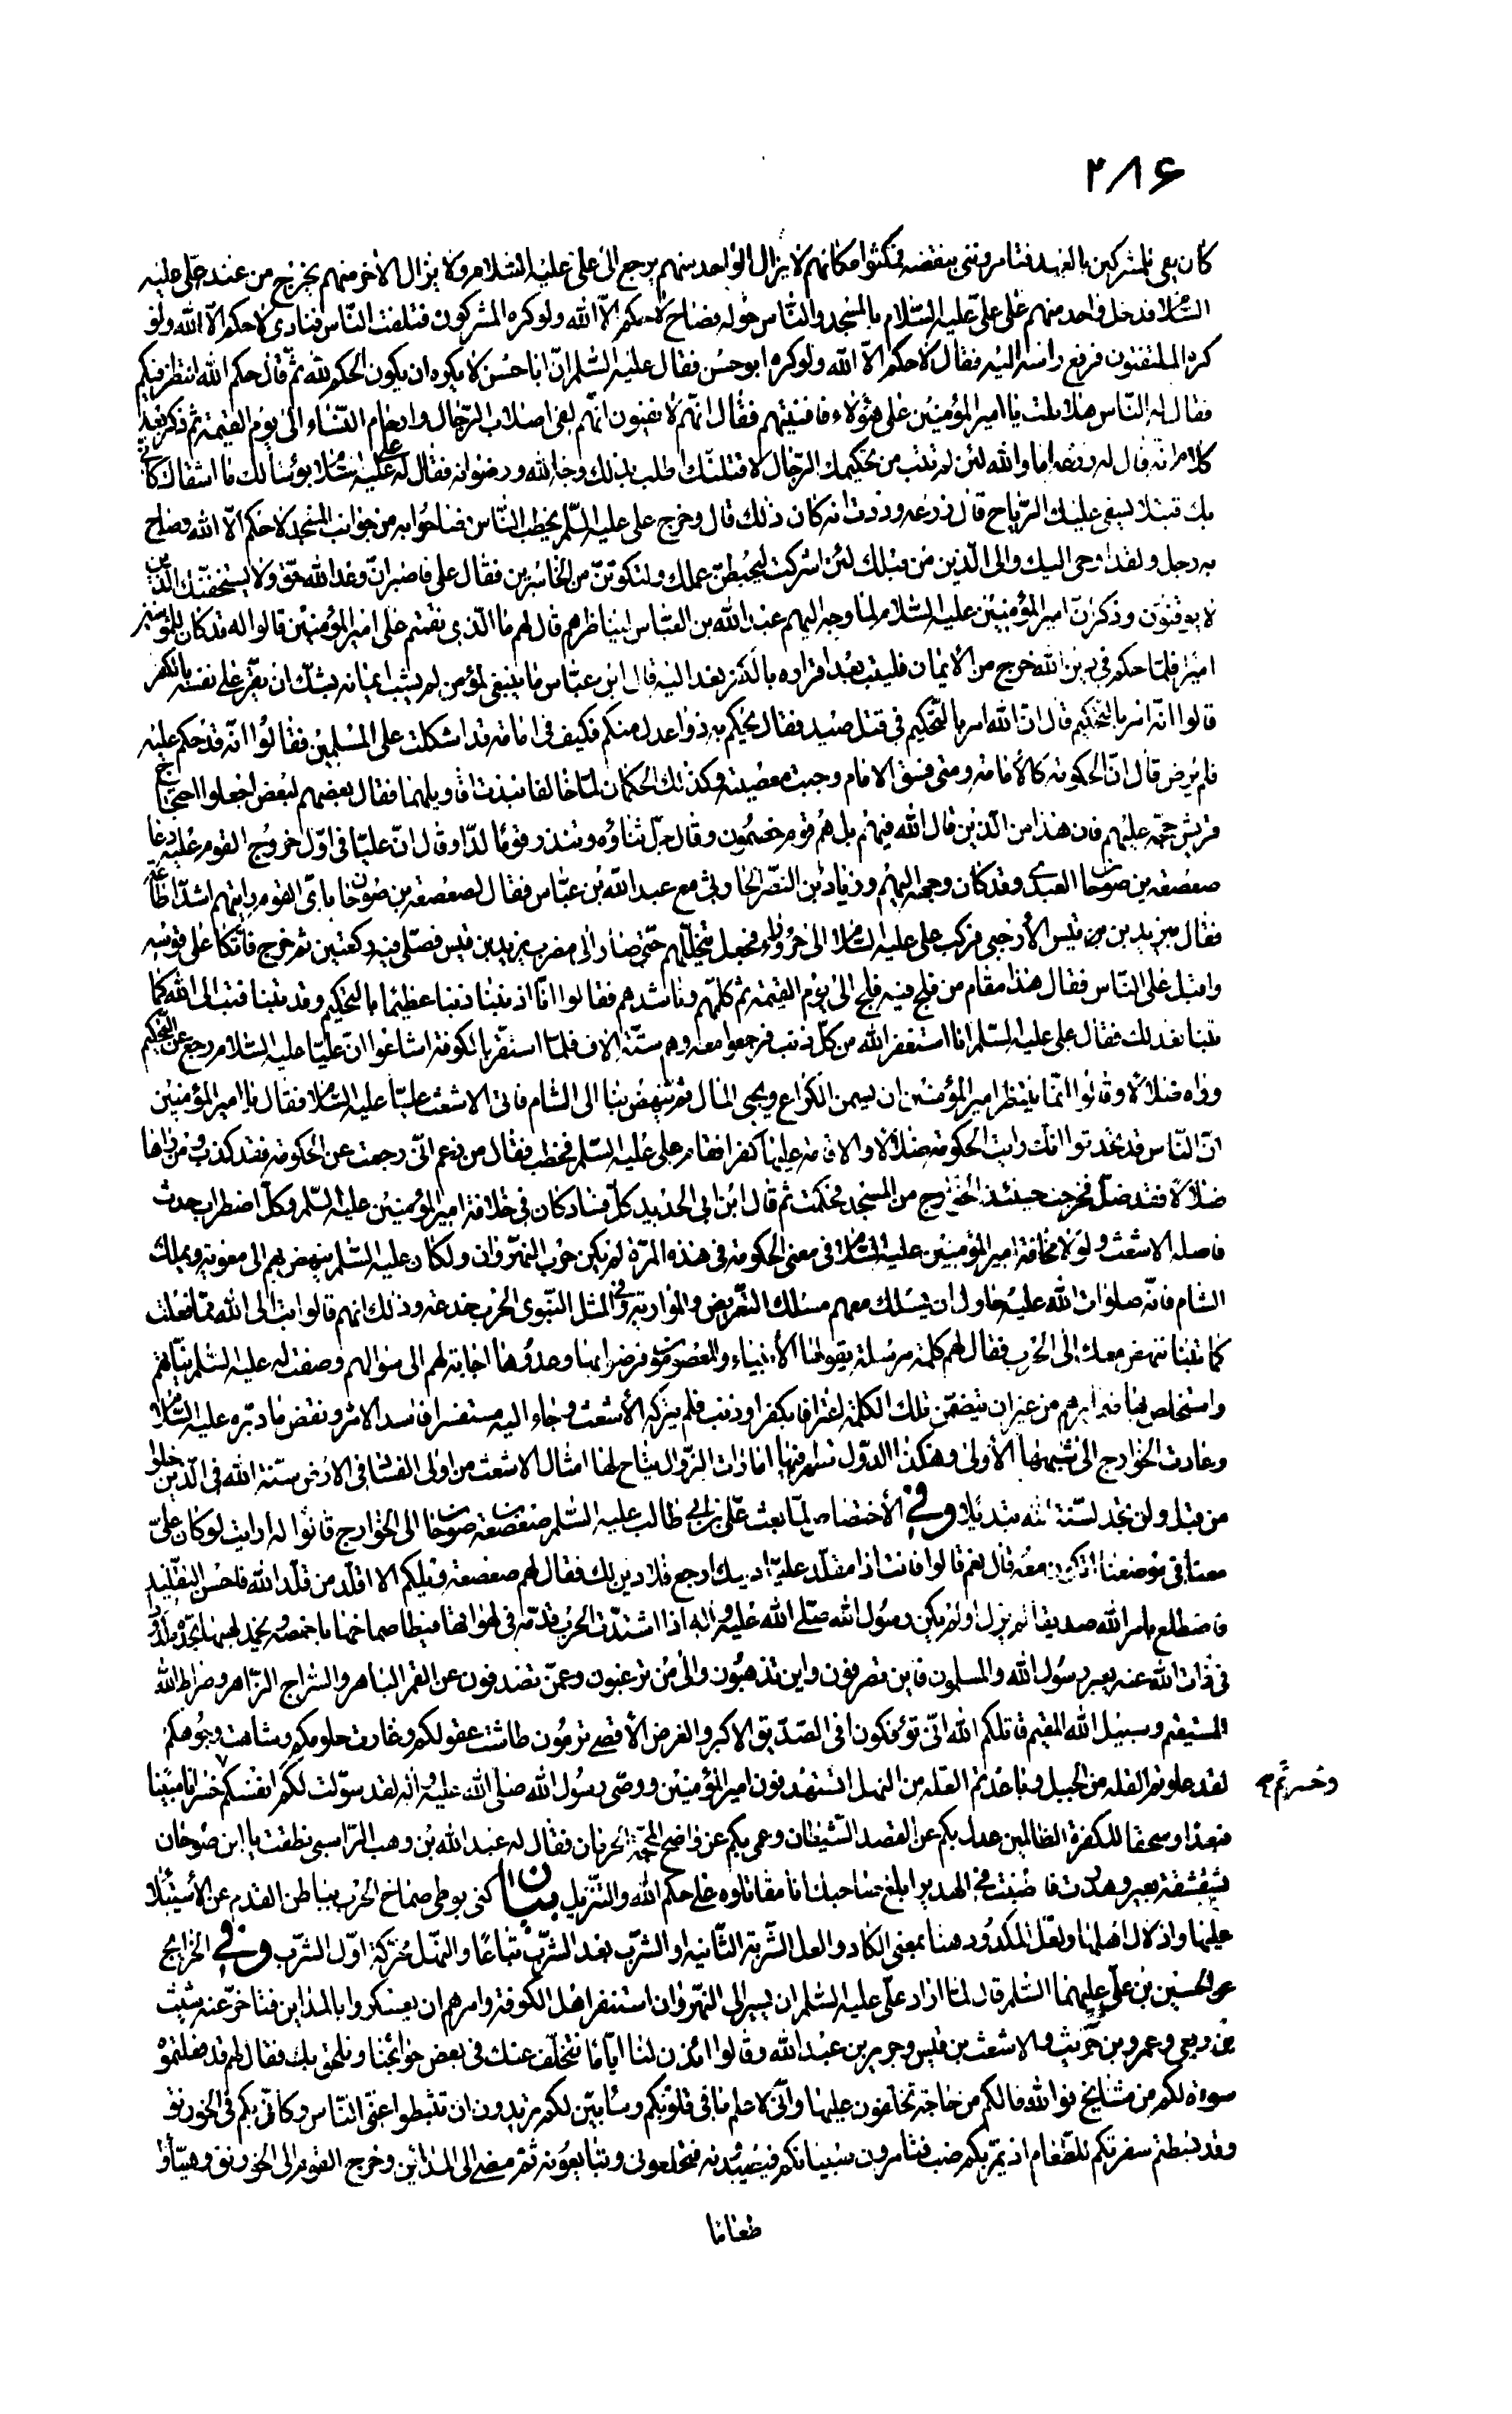 ٢٨۶
كان يفي للمشركين بالعهد فتأمروني بنقضه فمكثوا مكانهم لا يزال الواحد منهم يرجع الى علي عليه السلام ولا يزال الآخر منهم يخرج من عند علي عليه
السلام فدخل واحد منهم على علي عليه السلام بالمسجد والناس حوله فصاح لا حكم الا الله ولو كره المشركون فتلفت الناس فنادى لا حكم الا الله ولو
كره المتلفتون فرفع راسه اليه فقال لا حكم الا الله ولو كره ابو حسن فقال عليه السلم ان ابا حسن لا يكره ان يكون الحكم لله ثم قال حكم الله انتظر فيكم
فقال له الناس هلا ملت يا امير المؤمنين على هؤلاء فافنيتهم فقال انهم لا يفنون انهم لفي اصلاب الرجال وارحام النساء الى يوم القيمة ثم ذكر بعد
كلام انه قال له زرعه اما والله لئن لم تتب من تحكيمك الرجال لاقتلنك اطلب بذلك وجه الله ورضوانه فقال له علي عليه السلام بؤسا لك ما اشقاك كاني
بك قتيلا تسفي عليك الرياح قال زرعه وددت انه كان ذلك قال وخرج علي عليه السلم يخطب الناس فصاحوا به من جوانب المسجد لا حكم الا الله وصاح
به رجل ولقد اوحى اليك والى الذين من قبلك لئن اشركت ليحبطن عملك ولتكونن من الخاسرين فقال علي فاصبر ان وعد الله حق ولا يستخفنك الذين
لا يوقنون وذكر ان امير المؤمنين عليه السلام لما وجه اليهم عبد الله بن العباس ليناظرهم قال لهم ما الذي نقمتم على امير المؤمنين قالوا له قد كان للمؤمنين
اميرا فلما حكم في دين الله خرج من الايمان فليتب بعد اقراره بالكفر نعد اليه قال ابن عباس ما ينبغي لمؤمن لم يشب ايمانه بشك ان يقر على نفسه بالكفر
قالوا انه امر بالتحكيم قال ان الله امر بالتحكيم في قتل صيد فقال يحكم به ذوا عدل منكم فكيف في امامة قد اشكلت على المسلمين فقالوا انه قد حكم عليه
فلم يرض قال ان الحكومة كالامامة ومتى فسق الامام وجبت معصيته وكذلك الحكمان لما خالفا نبذت اقاويلهما فقال بعضهم لبعض اجعلوا احتجاج
قريش حجة عليهم فان هذا من الذين قال الله فيهم بل هم قوم خصمون وقال جل ثناؤه وتنذر به قوما لدا وقال ان عليا في اول خروج القوم عليه دعا
صعصعة بن صوحان العبدي وقد كان وجهه اليهم وزياد بن النضر الحارثي مع عبد الله بن عباس فقال لصعصعة بن صوحان باي القوم رايتهم اشد اطاعة
فقال بيزيد بن قيس الارحبي فركب علي عليه السلام الى حروراء فجعل يتخللهم حتى صار الى مضرب يزيد بن قيس فصلى فيه ركعتين ثم خرج فاتكا على قوسه
واقبل على الناس فقال هذا مقام من فلج فيه فلج الى يوم القيمة ثم كلمهم وناشدهم فقالوا انا اذنبنا ذنبا عظيما بالتحكيم وقد تبنا فتب الى الله كما
تبنا نعد لك فقال علي عليه السلم انا استغفر الله من كل ذنب فرجعوا معه وهم ستة الاف فلما استقر بالكوفة اشاعوا ان عليا عليه السلام رجع عن التحكيم
وراه ضلالا وقالوا انما ينتظر امير المؤمنين ان يسمن الكراع ويجبى المال ثم ينهض بنا الى الشام فاتى الاشعث عليا عليه السلام فقال يا امير المؤمنين
ان الناس قد تحدثوا انك رايت الحكومة ضلالا والاقامة عليها كفرا فقام علي عليه السلم فخطب فقال من زعم اني رجعت عن الحكومة فقد كذب ومن راها
ضلالا فقد ضل فخرجت حينئذ الخوارج من المسجد فحكمت ثم قال ابن ابي الحديد كل فساد كان في خلافة امير المؤمنين عليه السلم وكل اضطراب حدث
فاصله الاشعث ولولا محاقة امير المؤمنين عليه السلام في معنى الحكومة في هذه المرة لم يكن حرب النهروان ولكان عليه السلم ينهض بهم الى معوية ويملك
الشام فانه صلوات الله عليه حاول ان يسلك معهم مسلك التعريض والمواربة وفي المثل النبوي الحرب خدعة وذلك انهم قالوا تب الى الله مما فعلت
كما تبنا ننهض معك الى الحرب فقال لهم كلمة مرسلة يقولها الانبياء والمعصومون فرضوا بها وعدوها اجابة لهم الى سؤالهم وصفت له عليه السلم نياتهم
واستخلص بها ضمايرهم من غير ان يتضمن تلك الكلمة اعترافا بكفر او ذنب فلم يتركه الاشعث وجاء اليه مستفسرا فافسد الامر ونقض ما دبره عليه السلام
وعادت الخوارج الى شبهتها الاولى وهكذا الدول تظهر فيها امارات الزوال يتاح لها امثال الاشعث من اولى الفساد في الارض سنة الله في الذين خلوا
من قبل ولن تجد لسنة الله تبديلا وفي الاختصاص لما بعث علي بن ابي طالب عليه السلم صعصعة بن صوحان الى الخوارج قالوا له ارايت لو كان علي
معنا في موضعنا اتكون معه قال نعم قالوا فانت اذا مقلد عليا دينك ارجع فلا دين لك فقال لهم صعصعة ويلكم الا اقلد من قلد الله فاحسن التقليد
فاضطلع بامر الله صديقا لم يزل اولم يكن رسول الله صلى الله عليه واله اذا اشتدت الحرب قدمه في لهواتها فيطا صماخها باخمصه ويخمد لهبها بحده مكدودا
في ذات الله عنه يعبر رسول الله والمسلمون فاين تصرفون واين تذهبون والى من ترغبون وعمن تصدفون عن القمر الباهر والسراج الزاهر وصراط الله
المستقيم وسبيل الله المقيم قاتلكم الله انى تؤفكون افي الصديق الاكبر والغرض الاقصى ترمون طاشت عقولكم وغارت حلومكم وشاهت وجوهكم
لقد علوتم القلة من الجبل وباعدتم العلة من النهل اتستهدفون امير المؤمنين ووصي رسول الله صلى الله عليه واله لقد سولت لكم انفسكم خسرانا مبينا
وخسرتم صح
فبعدا وسحقا للكفرة الظالمين عدل بكم عن القصد الشيطان وعمى بكم عن واضح المحجة الحرمان فقال له عبد الله بن وهب الراسبي نطقت يا ابن صوحان
بشقشقة بعير وهدرت فاطنبت في الهدير ابلغ صاحبك انا مقاتلوه على حكم الله والتنزيل بيان كنى بوطي صماخ الحرب بباطن القدم عن الاستيلاء
عليها واذلال اهلها ولعل المكدود هنا بمعنى الكاد والعل الشربة الثانية او الشرب بعد الشرب تباعا والنهل محركة اول الشرب وفي الخرائج
عن الحسين بن علي عليهما السلم قال لما اراد علي عليه السلم ان يسير الى النهروان استنفر اهل الكوفة وامرهم ان يعسكروا بالمداين فتاخر عنه شبث
بن ربعي وعمرو بن حريث والاشعث بن قيس وجرير بن عبد الله وقالوا ائذن لنا اياما نتخلف عنك في بعض حوائجنا ونلحق بك فقال لهم قد فعلتموه
سوءة لكم من مشايخ فو الله مالكم من حاجة تخلفون عليها واني لاعلم ما في قلوبكم وسابين لكم تريدون ان تثبطوا عني الناس وكاني بكم في الخورنق
وقد بسطتم سفرتكم للطعام اذ يمر بكم ضب فتامرون صبيانكم فيصيدونه فتخلعوني وتبايعونه ثم مضى الى المدائن وخرج القوم الى الخورنق وهياوا
طعاما